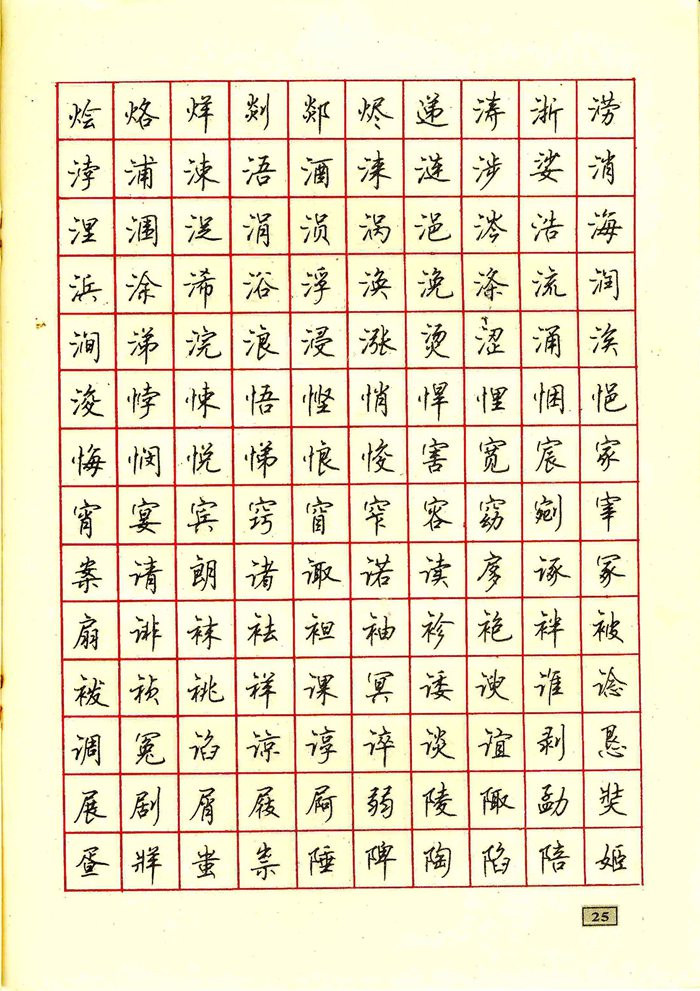 烩烙烊剡郯烬递涛浙涝
浡浦涑浯酒涞涟涉娑消
涅涠浞涓涢涡浥涔浩海
浜涂浠浴浮涣浼涤流润
涧涕浣浪浸涨烫涩涌涘
浚悖悚悟悭悄悍悝悃悒
悔悯悦悌悢悛害宽宸家
宵宴宾窍窅窄容窈剜宰
案请朗诸诹诺读扅诼冢
扇诽袜祛袒袖袗袍袢被
袯祯祧祥课冥诿谀谁谂
调冤谄谅谆谇谈谊剥恳
展剧屑屐屙弱陵陬勐奘
疍牂蚩祟陲陴陶陷陪姬
25